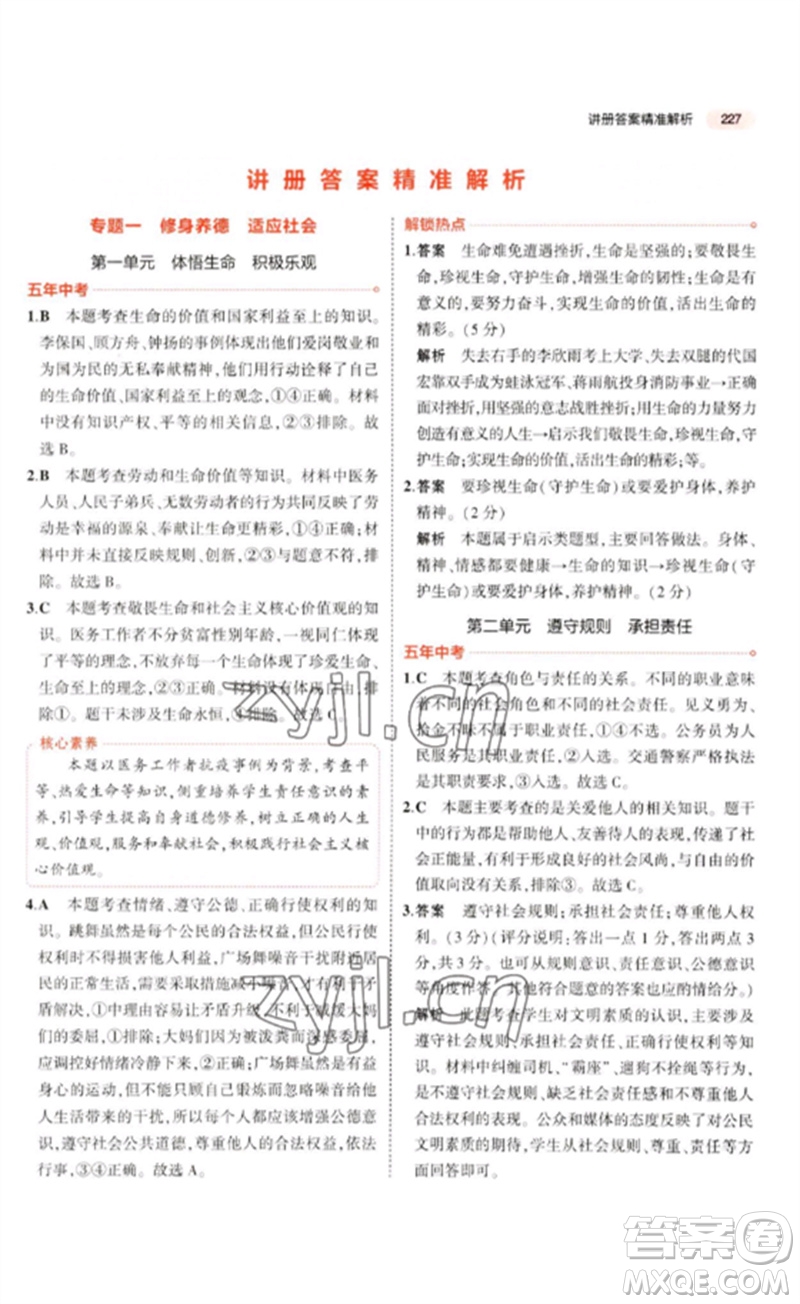 讲册答案精准解析 227
讲册答案精准解析
专题一 修身养德 适应社会
第一单元 体悟生命 积极乐观
五年中考
1.B 本题考查生命的价值和国家利益至上的知识。
李保国、顾方舟、钟扬的事例体现出他们爱岗敬业和
为国为民的无私奉献精神,用行动诠释了自己
的生命价值、国家利益至上的观念,①④正确。材料
中没有知识产权、平等的相关信息,②③排除。故
选B。
2.B 本题考查劳动和生命价值等知识。材料中医务
人员、人民子弟兵、无数劳动者的行为共同反映了劳
动是幸福的源泉、奉献让生命更精彩,①④正确。材料
中并未直接反映规则、创新,②③与题意不符,排
除。故选B。
3.C 本题考查敬畏生命和社会主义核心价值观的知
识。医务工作者不分贫富性别年龄,一视同仁体现
了平等的理念,
排除①。题干未涉及生命永恒,④排除。故选C。
核心素养
本题以医务工作者抗疫事例为背景,考查平
等、热爱生命等知识,侧重培养学生责任意识的素
养,引导学生提高自身道德修养,树立正确的人生
观、价值观,服务和奉献社会,积极践行社会主义核
心价值观。
4.A 本题考查情绪、遵守公德、正确行使权利的知
识。跳舞虽然是每个公民的合法权益,但公民行使
权利时不能损害他人利益,广场舞噪音干扰附近居
民的正常生活,需要采取措施减
盾解决,①中理由容易让矛盾升级,不利于
们的委屈,①排除;大妈们因为被泼粪而深感委屈,
应调控好情绪冷静下来,②排除;广场舞虽然是有益
身心的运动,但不能只顾自己锻炼而忽略噪音给他
人生活带来的干扰,我们每个人都应该增强公德意
识,遵守社会公共道德,尊重他人的合法权益,依法
行事,③④正确。故选A。
解锁热点
1.答案 生命难免遭遇挫折,生命是坚强的;要敬畏生
命,珍视生命,守护生命,增强生命的韧性;生命是有
意义的,要努力奋斗,实现生命的价值,活出生命的
精彩。(5分)
解析 失去右手的李欣雨考上大学、失去双腿的代国
宏靠双手成为蛙泳冠军、蒋雨航投身消防事业→正确
面对挫折,用坚强的意志战胜挫折;用努力奋斗的行动
创造有意义的人生→启示我们敬畏生命,珍视生命,守
护生命,实现生命的价值,活出生命的精彩;等。
2.答案 要珍视生命(守护生命)或要爱护身体,养护
精神。(2分)
解析 本题属于启示类题型,主要回答做法。身体、
精神、情感都要健康→生命的知识→要珍视生命(守
护生命)或要爱护身体,养护精神。(2分)
第二单元 遵守规则 承担责任
五年中考
1.C 本题考查角色与责任的关系。不同的职业意味
着不同的角色和不同的社会责任。见义勇为、
拾金不昧不属于职业责任,①④不选。公务员为人
民服务是其职责,②正确。交通警察严格执法
是其职责要求,③正确。故选C。
2.C 本题主要考查的是关爱他人的相关知识。题干
中的行为都是帮助他人、友善待人的表现,传递了社
会正能量,有利于形成良好的社会风尚,与自己的价
值取向没有联系,排除③。故选C。
3.答案 遵守社会规则;承担社会责任;尊重他人权
利。(3分)(评分说明:答出一点1分,答出两点3
分,共3分。可从规则意识、责任意识、公德意识
等角度作答。其他符合题意的答案也应酌情给分。)
解析 此题考查学生对文明素质的认识,主要涉及
遵守社会规则、承担社会责任、正确行使权利等相关
知识。材料中纠缠司机、“霸座”、遛狗不拴绳等行
为,是缺乏社会公德、缺乏社会责任感、侵犯他人合法
权益的表现。公众和媒体的态度反映了对公民
文明素质的期待,学生从社会规则、尊重、责任等方
面回答即可。
zyjl.cn
zyjl.cn
答案圈
MXQE.COM